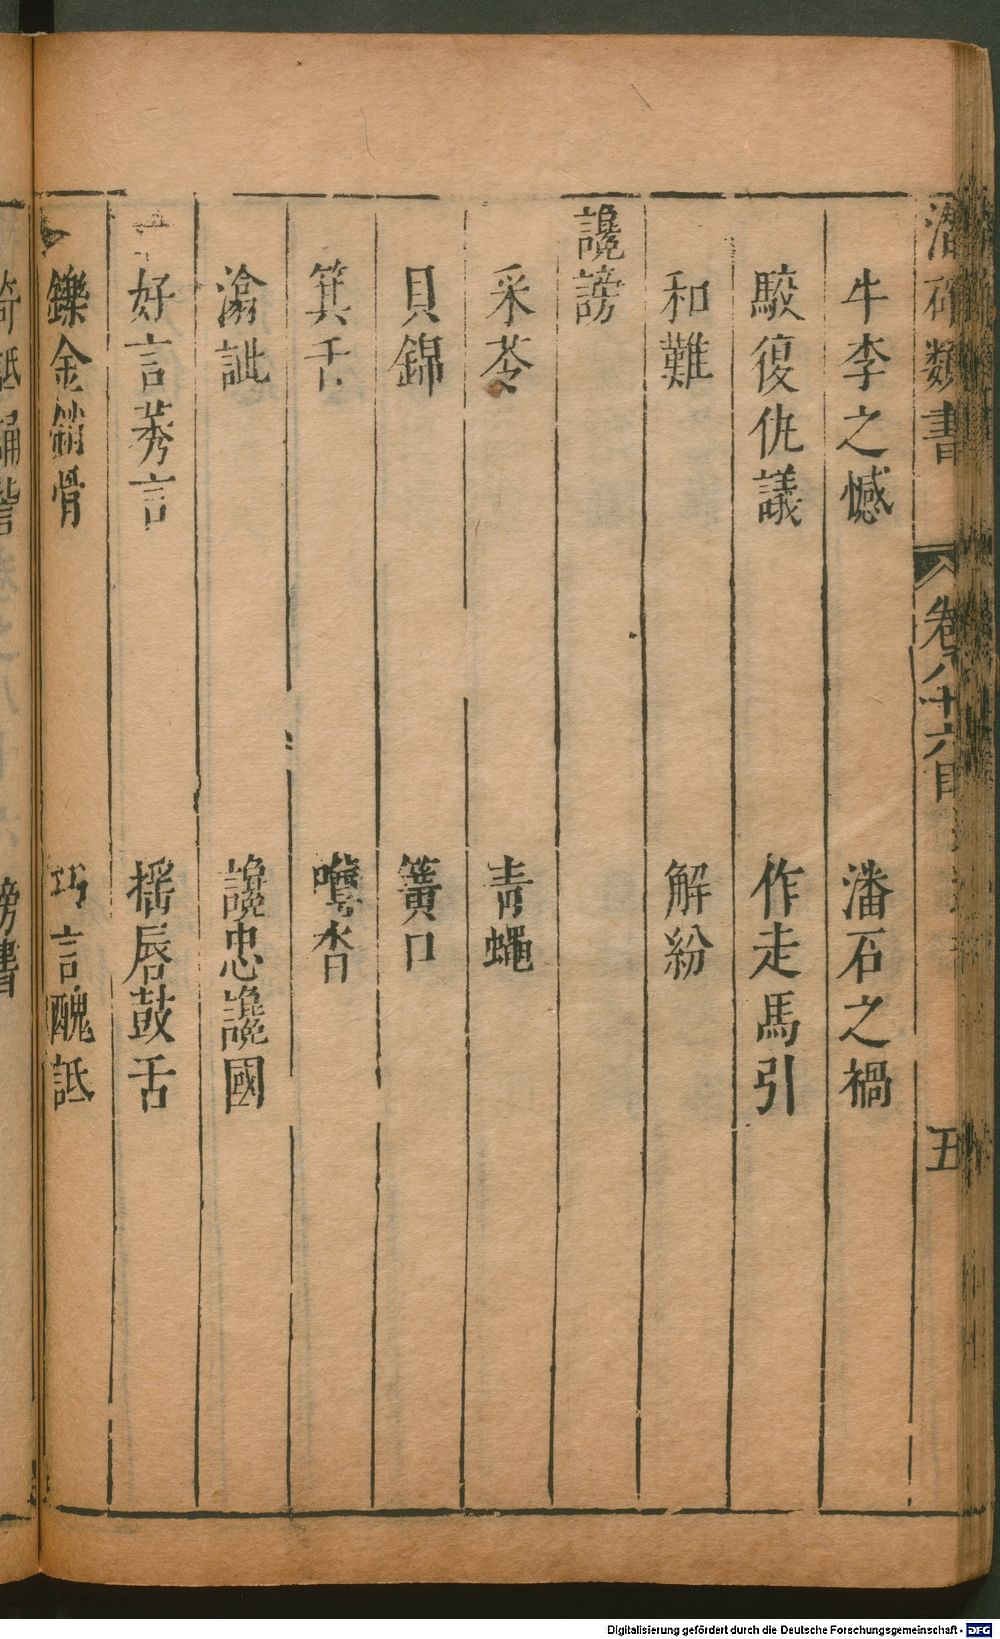 潛確類書 卷八十六目 五
牛李之憾 潘石之禍
駮復仇議 作走馬引
和難 解紛
讒謗
采苓 青蠅
貝錦 簧口
箕舌 噂沓
潝訿 讒忠讒國
好言莠言 搖唇鼓舌
鑠金銷骨 巧言醜詆
謗書
Digitalisierung gefördert durch die Deutsche Forschungsgemeinschaft - DFG